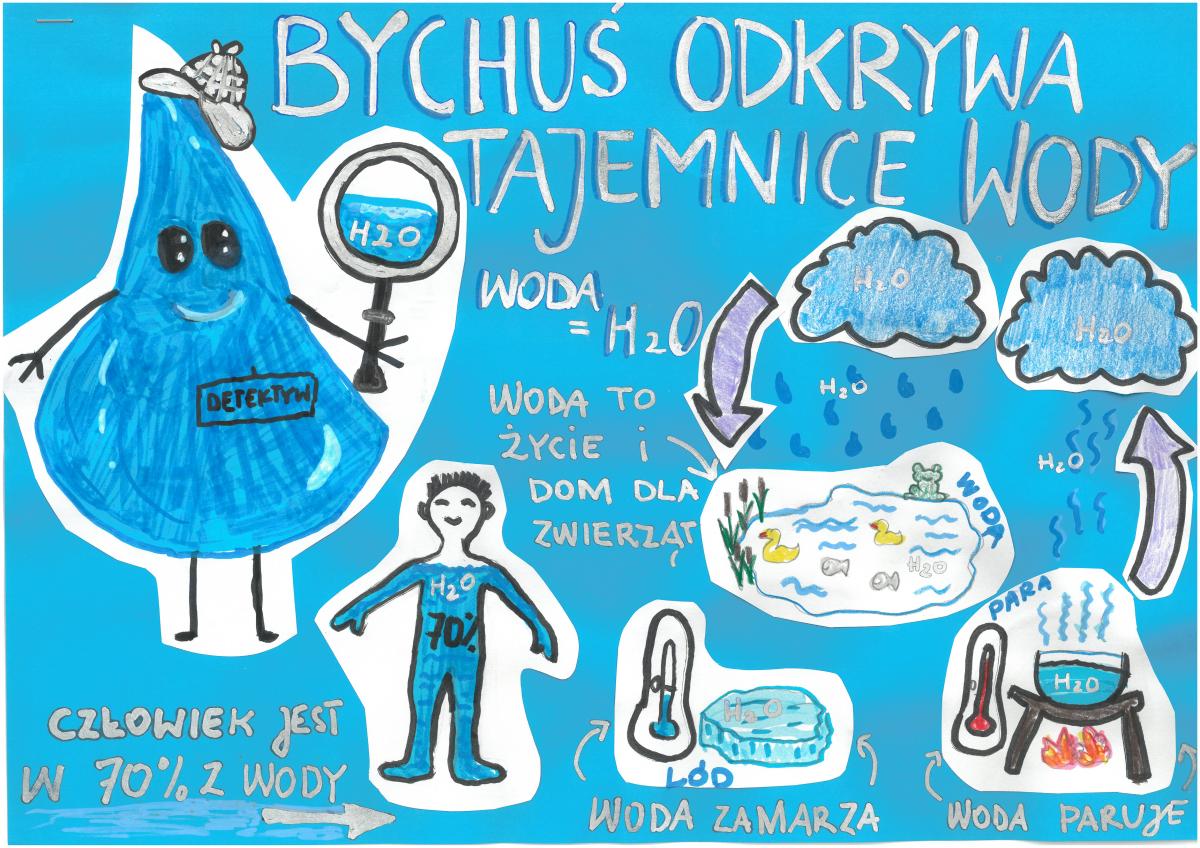 BYCHUŚ ODKRYWA
TAJEMNICE WODY
H2O
DETEKTYW
WODA
= H2O
H2O
H2O
H2O
H2O
WODA TO
ŻYCIE i
DOM DLA
ZWIERZĄT
WODA
H2O
H2O
70%
CZŁOWIEK JEST
W 70% Z WODY
H2O
LÓD
WODA ZAMARZA
PARA
H2O
WODA PARUJE